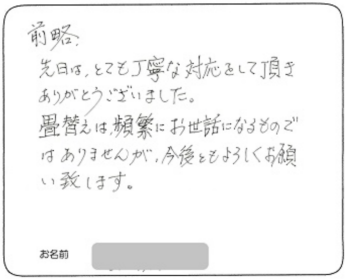 前略.
先日は、とても丁寧な対応をして頂き
ありがとうございました。
畳替えは、頻繁にお世話になるもので
はありませんが、今後ともよろしくお願
い致します。
お名前